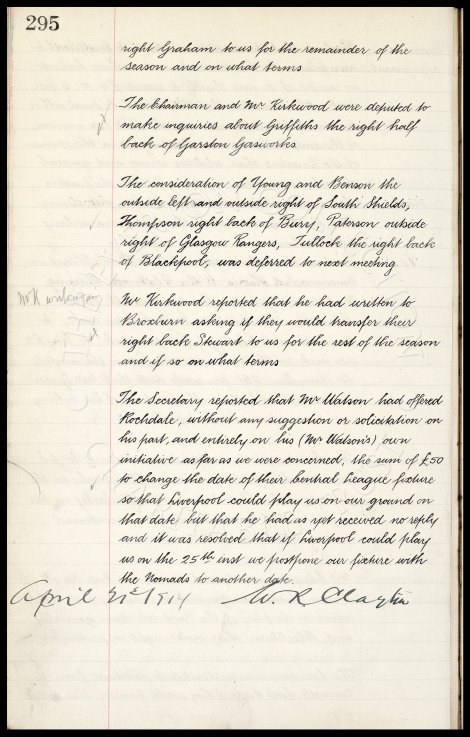 295
right Graham to us for the remainder of the
season and on what terms
The Chairman and Mr Kirkwood were deputed to
make inquiries about Griffiths the right half
back of Garston Gasworks.
The consideration of Young and Benson the
outside left and outside right of South Shields;
Thompson right back of Bury, Paterson outside
right of Glasgow Rangers, Tullock the right back
of Blackpool, was deferred to next meeting.
Mr K
Mr Kirkwood reported that he had written to
Broxburn asking if they would transfer their
right back Stewart to us for the rest of the season
and if so on what terms
The Secretary reported that Mr Watson had offered
Rochdale, without any suggestion or solicitation on
his part, and entirely on his (Mr Watson's) own
initiative as far as we were concerned, the sum of £50
to change the date of their Central League fixture
so that Liverpool could play us on our ground on
that date but that he had as yet received no reply
and it was resolved that if Liverpool could play
us on the 25th inst we postpone our fixture with
the Nomads to another date.
April 21st 1914 W. R. Clayton